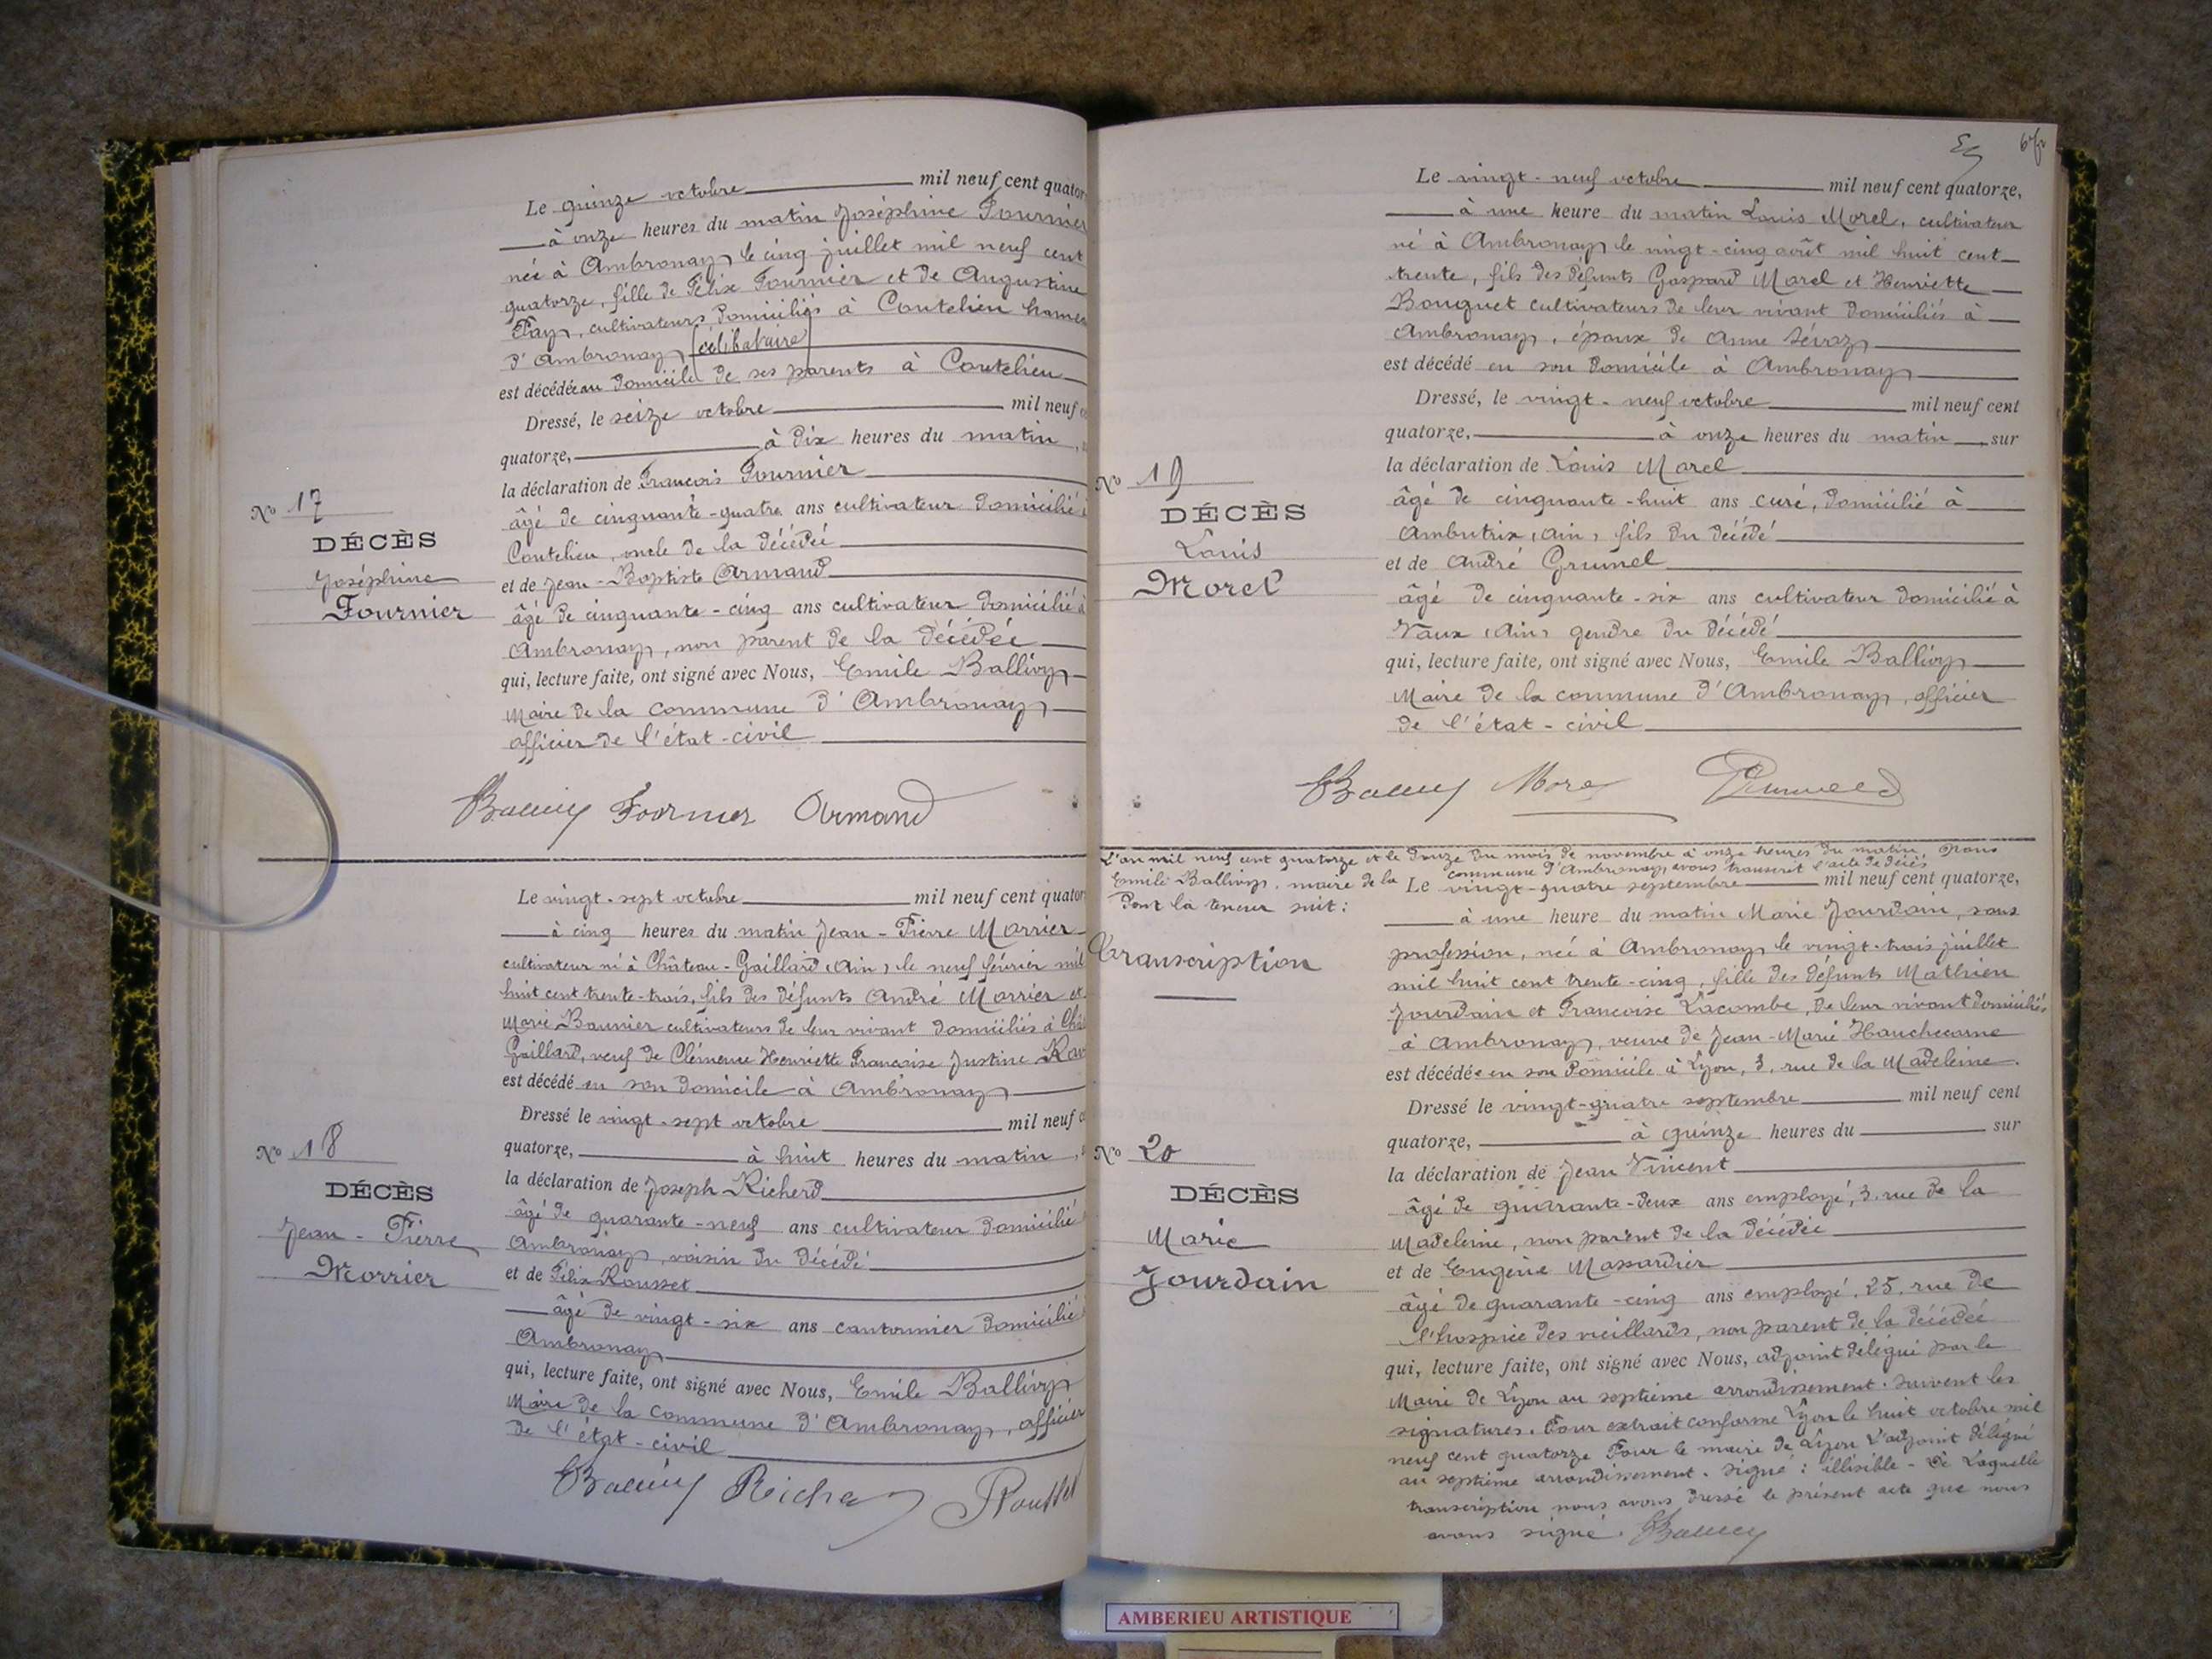 Le quinze octobre mil neuf cent quator
à onze heures du matin Joséphine Fournier
née à Ambronay le cinq juillet mil neuf cent
quatorze, fille de Félix Fournier et de Augustine
Fay, cultivateurs domiciliés à Coutelieu hameau
d'Ambronay célibataire
est décédée au domicile de ses parents à Coutelieu
Dressé, le seize octobre mil neuf
quatorze, à dix heures du matin
la déclaration de François Fournier
âgé de cinquante-quatre ans cultivateur domicilié
Coutelieu, oncle de la décédée
et de Jean-Baptiste Armand
âgé de cinquante-cinq ans cultivateur domicilié à
Ambronay, non parent de la décédée
qui, lecture faite, ont signé avec Nous, Emile Ballivy
Maire de la commune d'Ambronay
officier de l'état-civil
Nº 17
DÉCÈS
Joséphine
Fournier
Ballivy Fournier Armand
Le vingt-sept octobre mil neuf cent quator
à cinq heures du matin Jean-Pierre Morrier
cultivateur né à Château-Gaillard (Ain) le neuf février mil
huit cent trente-trois, fils des défunts André Morrier et
Marie Baunier cultivateurs de leur vivant domiciliés à Châ
Gaillard, veuf de Clémence Henriette Françoise Justine
est décédé en son domicile à Ambronay
Dressé le vingt-sept octobre mil neuf
quatorze, à huit heures du matin
la déclaration de Joseph Richerd
âgé de quarante-neuf ans cultivateur domicilié
Ambronay, voisin du décédé
et de Félix Rousset
âgé de vingt-six ans cantonnier domicilié
Ambronay
qui, lecture faite, ont signé avec Nous, Emile Ballivy
Maire de la commune d'Ambronay, officier
de l'état-civil
Nº 18
DÉCÈS
Jean-Pierre
Morrier
Ballivy Richerd Rousset
Le vingt-neuf octobre mil neuf cent quatorze,
à une heure du matin Louis Morel, cultivateur
né à Ambronay le vingt-cinq août mil huit cent
trente, fils des défunts Gaspard Morel et Henriette
Bouquet cultivateurs de leur vivant domiciliés à
Ambronay, époux de Anne Sévoz
est décédé en son domicile à Ambronay
Dressé, le vingt-neuf octobre mil neuf cent
quatorze, à onze heures du matin sur
la déclaration de Louis Morel
âgé de cinquante-huit ans curé, domicilié à
Ambutrix (Ain) fils du décédé
et de André Grumel
âgé de cinquante-six ans cultivateur domicilié à
Vaux (Ain) gendre du décédé
qui, lecture faite, ont signé avec Nous, Emile Ballivy
Maire de la commune d'Ambronay, officier
de l'état-civil
Nº 19
DÉCÈS
Louis
Morel
Ballivy Morel Grumel
L'an mil neuf cent quatorze et le douze du mois de novembre à onze heures du matin, Nous
Emile Ballivy, maire de la commune d'Ambronay, avons transcrit l'acte de décès
dont la teneur suit :
Transcription
Le vingt-quatre septembre mil neuf cent quatorze,
à une heure du matin Marie Jourdain, sans
profession, née à Ambronay le vingt-trois juillet
mil huit cent trente-cinq, fille des défunts Mathieu
Jourdain et Françoise Lacombe, de leur vivant domiciliés
à Ambronay, veuve de Jean-Marie Hauchecorne
est décédée en son domicile à Lyon, 3, rue de la Madeleine.
Dressé le vingt-quatre septembre mil neuf cent
quatorze, à quinze heures du sur
la déclaration de Jean Vincent
âgé de quarante-deux ans employé, 3, rue de la
Madeleine, non parent de la décédée
et de Eugène Massardier
âgé de quarante-cinq ans employé, 25, rue de
l'hospice des vieillards, non parent de la décédée
qui, lecture faite, ont signé avec Nous, adjoint délégué par le
Maire de Lyon au septième arrondissement. Suivent les
signatures. Pour extrait conforme Lyon le huit octobre mil
neuf cent quatorze Pour le maire de Lyon l'adjoint délégué
au septième arrondissement. Signé : illisible - De laquelle
transcription nous avons dressé le présent acte que nous
avons signé. Ballivy
Nº 20
DÉCÈS
Marie
Jourdain
AMBERIEU ARTISTIQUE